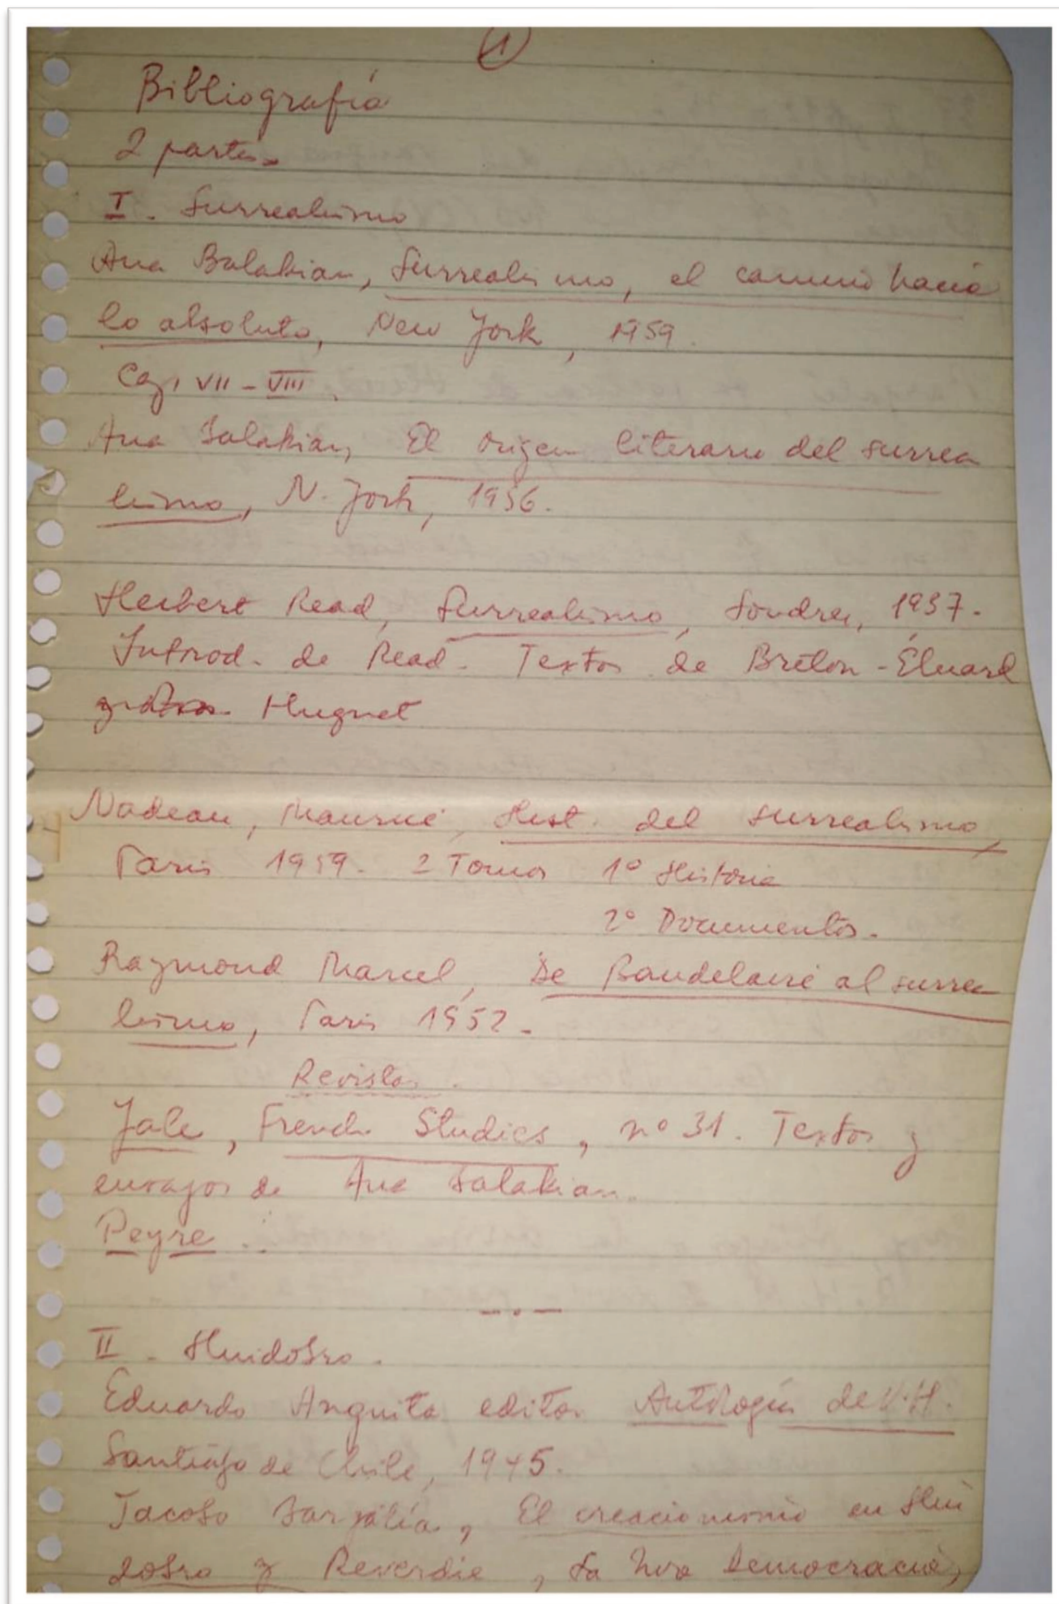 1
Bibliografía
2 partes.
I. Surrealismo
Ana Balakian, Surrealismo, el camino hacia
lo absoluto, New York, 1959.
Cap. VII - VIII.
Ana Balakian, El origen literario del surrea
lismo, N. York, 1956.
Herbert Read, Surrealismo, Londres, 1937.
Introd. de Read. Textos de Breton - Éluard
y Hugnet
Nadeau, Maurice, Hist. del surrealismo,
Paris 1959. 2 Tomos 1º Historia
2º Documentos.
Raymond Marcel, De Baudelaire al surrea
lismo, Paris 1952.
Revistas.
Yale, French Studies, nº 31. Textos y
ensayos de Ana Balakian.
Peyre.
II - Huidobro.
Eduardo Anguita editor Antología de V.H.
Santiago de Chile, 1945.
Jacobo Barjalía, El creacionismo en Hui
dobro y Reverdie, La Nva Democracia,